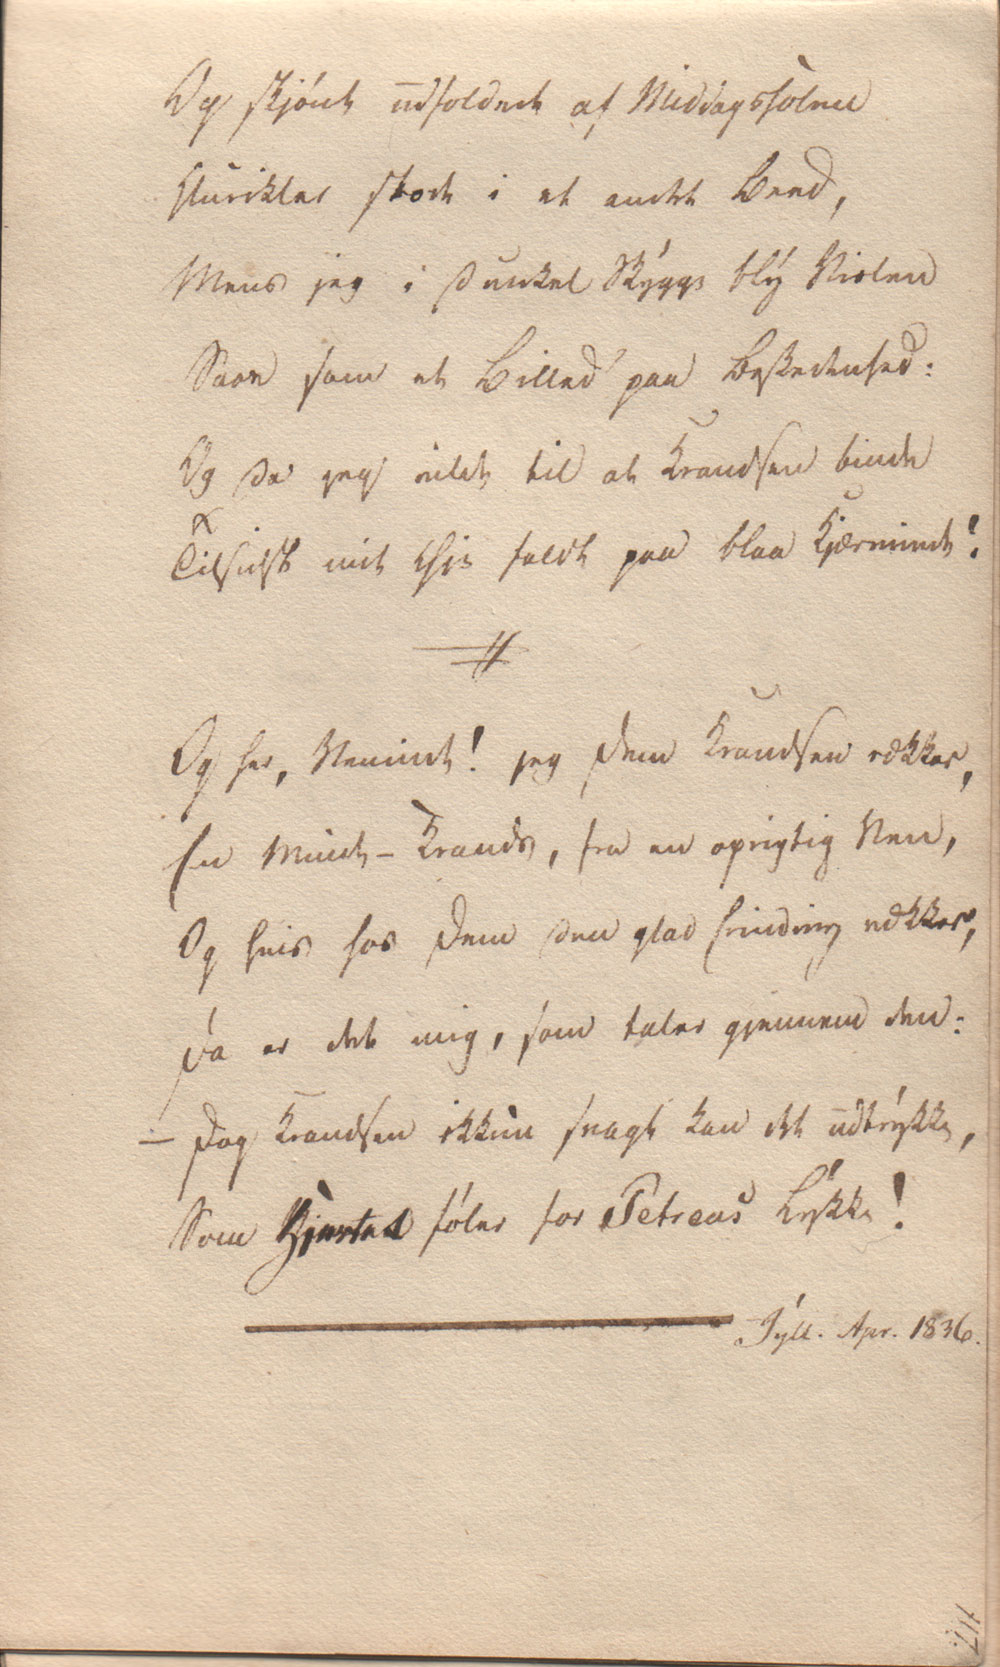 Og skjönt udfoldede af Middagssolen
Aurikler stode i et andet Beed,
Mens jeg i dunkel Skygge bly Violen
Saae som et Billed' paa Beskedenhed:
Og da jeg ilede til at Krandsen binde
Tilsidst mit Öie faldt paa blaa Kjærminde!
Og her, Veninde! jeg Dem Krandsen rækker,
En Minde-Krands, fra en oprigtig Ven,
Og hvis hos Dem den glad Erindring vækker,
Da er det mig, som taler gjennem den:
– Dog Krandsen ikkun svagt kan det udtrykke,
Som Hjertet föler for Petreas Lykke!
Jyll. Apr. 1836.